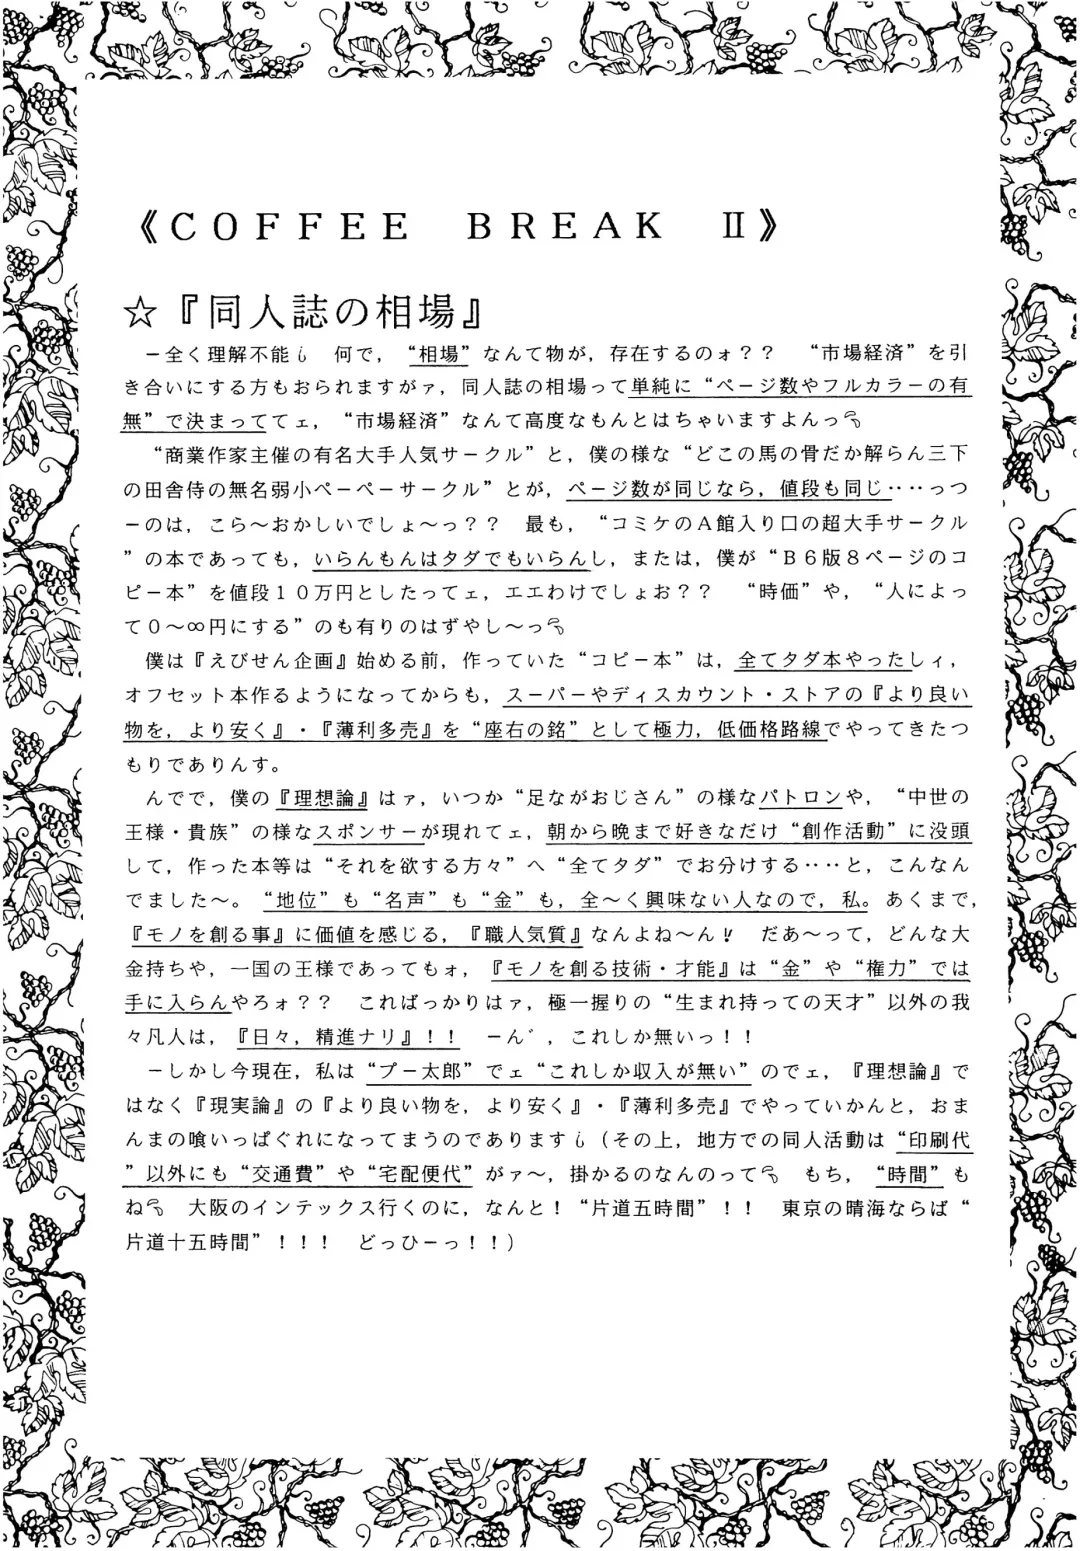 《ＣＯＦＦＥＥ　ＢＲＥＡＫ　Ⅱ》
☆『同人誌の相場』
　－全く理解不能　何で，“相場”なんて物が，存在するのォ？？　“市場経済”を引
き合いにする方もおられますがァ，同人誌の相場って単純に“ページ数やフルカラーの有
無”で決まっててェ，“市場経済”なんて高度なもんとはちゃいますよんっ
　“商業作家主催の有名大手人気サークル”と，僕の様な“どこの馬の骨だか解らん三下
の田舎侍の無名弱小ペーペーサークル”とが，ページ数が同じなら，値段も同じ‥‥っつ
ーのは，こら～おかしいでしょ～っ？？　最も，“コミケのＡ館入り口の超大手サークル
”の本であっても，いらんもんはタダでもいらんし，または，僕が“Ｂ６版８ページのコ
ピー本”を値段１０万円としたってェ，エエわけでしょお？？　“時価”や，“人によっ
て０～∞円にする”のも有りのはずやし～っ
　僕は『えびせん企画』始める前，作っていた“コピー本”は，全てタダ本やったしィ，
オフセット本作るようになってからも，スーパーやディスカウント・ストアの『より良い
物を，より安く』・『薄利多売』を“座右の銘”として極力，低価格路線でやってきたつ
もりでありんす。
　んでで，僕の『理想論』はァ，いつか“足ながおじさん”の様なパトロンや，“中世の
王様・貴族”の様なスポンサーが現れてェ，朝から晩まで好きなだけ“創作活動”に没頭
して，作った本等は“それを欲する方々”へ“全てタダ”でお分けする‥‥と，こんなん
でました～。“地位”も“名声”も“金”も，全～く興味ない人なので，私。あくまで，
『モノを創る事』に価値を感じる，『職人気質』なんよね～ん！　だあ～って，どんな大
金持ちや，一国の王様であってもォ，『モノを創る技術・才能』は“金”や“権力”では
手に入らんやろォ？？　こればっかりはァ，極一握りの“生まれ持っての天才”以外の我
々凡人は，『日々，精進ナリ』！！　－ん゛，これしか無いっ！！
　－しかし今現在，私は“プー太郎”でェ“これしか収入が無い”のでェ，『理想論』で
はなく『現実論』の『より良い物を，より安く』・『薄利多売』でやっていかんと，おま
んまの喰いっぱぐれになってまうのであります（その上，地方での同人活動は“印刷代
”以外にも“交通費”や“宅配便代”がァ～，掛かるのなんのって　もち，“時間”も
ね　大阪のインテックス行くのに，なんと！“片道五時間”！！　東京の晴海ならば“
片道十五時間”！！！　どっひーっ！！）